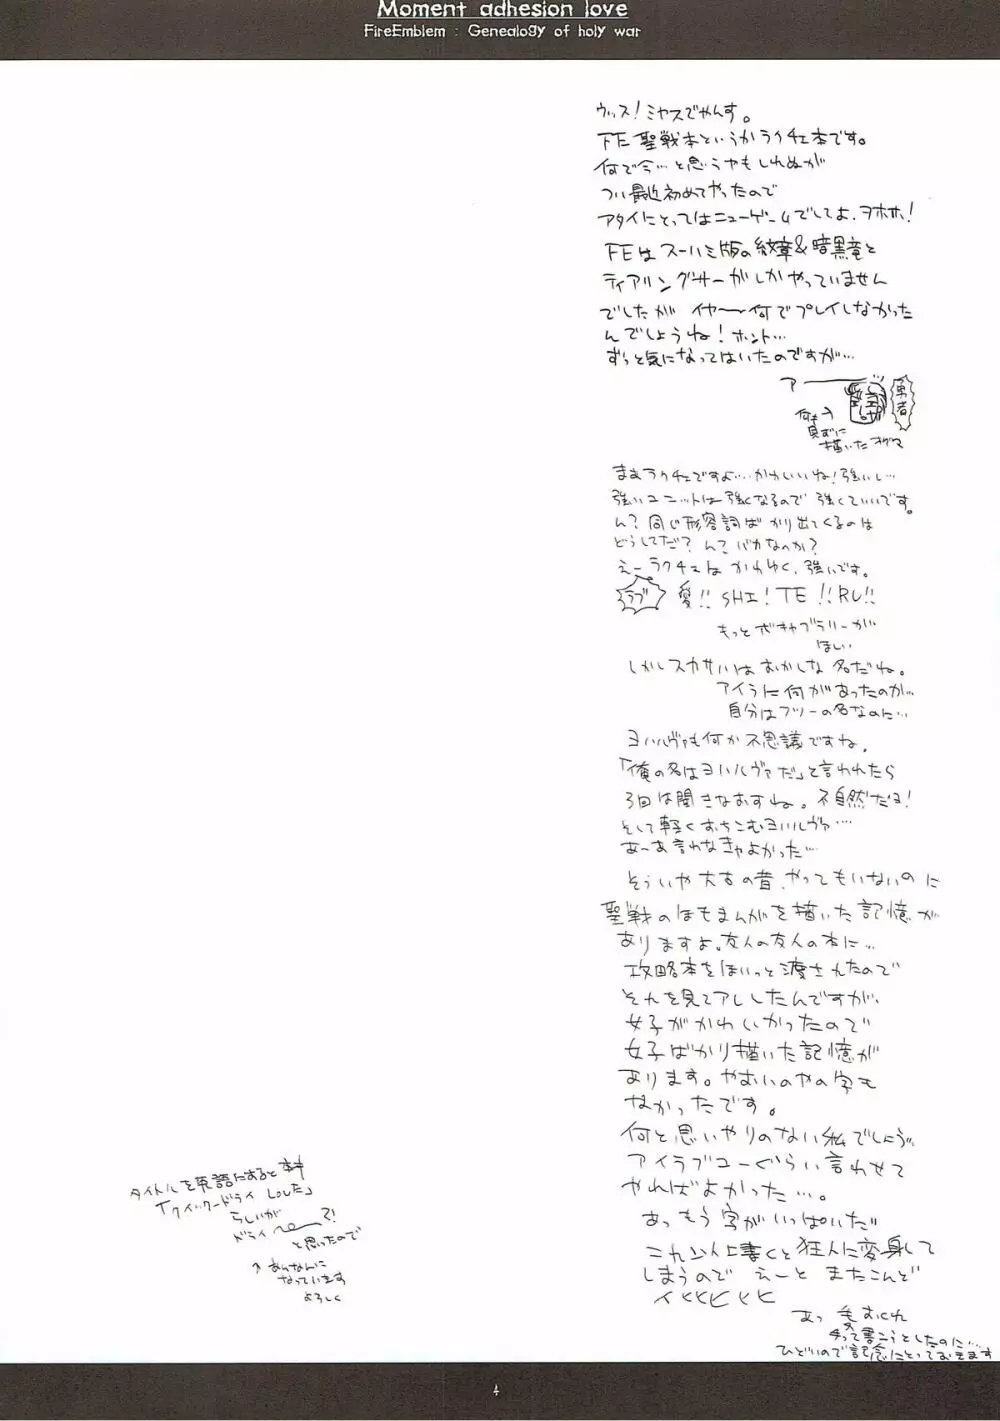 Moment adhesion love
FireEmblem : Genealogy of holy war
ウッス!ミヤスでやんす。
FE聖戦本というかラクチェ本です。
何で今…と思うやもしれぬが
つい最近初めてやったので
アタイにとってはニューゲームでしてよ、ヲホホ!
FEはスーハミ版の紋章&暗黒竜と
ティアリングサーガしかやっていません
でしたが イヤ〜何でプレイしなかった
んでしょうね!ホント…
ずっと気になってはいたのですが…
アー
勇者
何も
見ずに
描いたオグマ
まあラクチェですよ…かわいいね!強いし…
強いユニットは強くなるので強くていいです。
ん?同じ形容詞ばかり出てくるのは
どうしてだ?ん?バカなのか?
えーラクチェはかわゆく、強いです。
ラブ 愛!!SHI!TE!!RU!!
もっとボキャブラリーが
ほしい
しかしスカサハはおかしな名だね。
アイラに何があったのか…
自分はフツーの名なのに…
ヨハルヴァも何か不思議ですね。
「俺の名はヨハルヴァだ」と言われたら
3回は聞きなおすね。不自然だヨ!
そして軽くおちこむヨハルヴァ…
あーあ言わなきゃよかった…
そういや大古の昔、やってもいないのに
聖戦のほもまんがを描いた記憶が
ありますよ。友人の友人の本に…
攻略本をほいっと渡されたので
それを見てアレしたんですが、
女子がかわいかったので
女子ばかり描いた記憶が
あります。やおいのやの字も
なかったです。
何と思いやりのない私でしょう!!
アイラブユーぐらい言わせて
やればよかった…。
あっもう字がいっぱいだ!!
これ以上書くと狂人に変身して
しまうので えーと またこんど
イヒヒヒヒヒ
あっ
って書こうとしたのに…
ひどいので記念にとっておきます
タイトルを英語にすると
「クイックードライ Loveだ」
らしいが
ドライ〜って!
と思ったので
↑あんなんに
なっています
よろしく
4